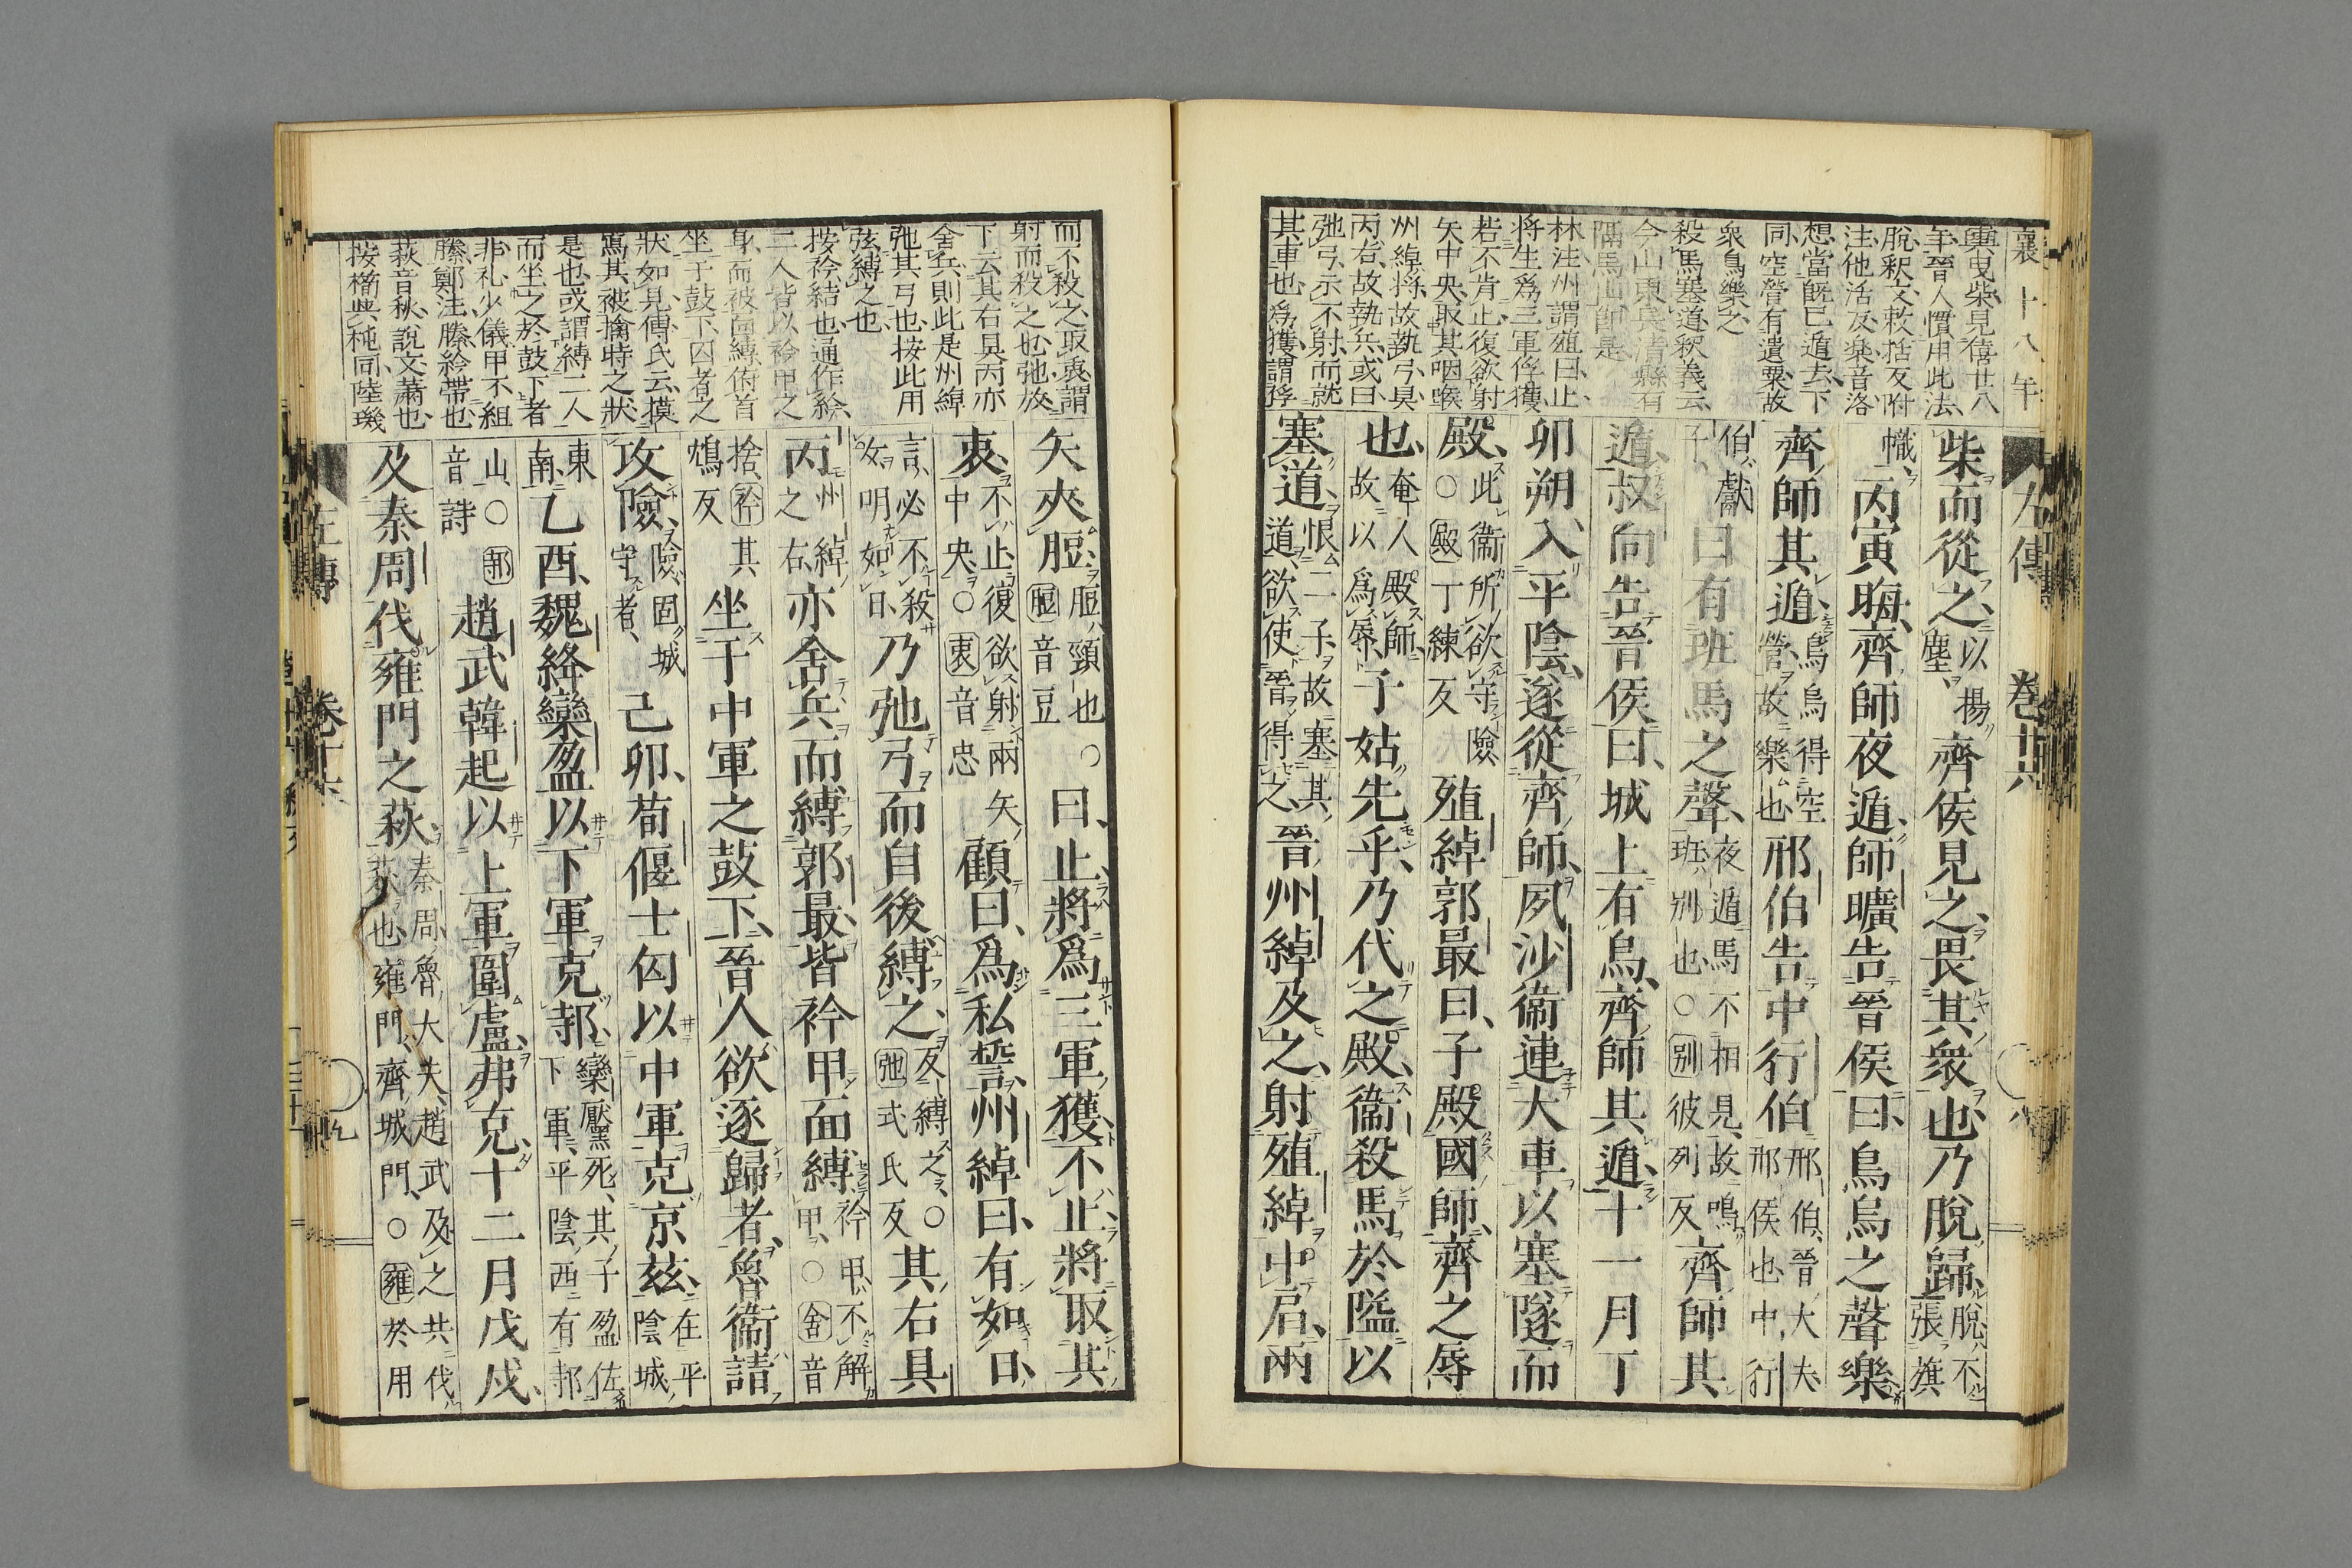 襄十八年
輿曳柴見僖廿八
年晉人慣用此法
脫釋文敕括反附
注他活反樂音洛
想當既已遁去下
同空營有遺粟故
衆鳥樂之
殺馬塞道釋義云
今山東兖清縣有
隔馬山即是
林注州謂殖曰止
將生爲三軍俘獲
若不肯止復欲射
矢中央取其咽喉
州綽將故執弓具
丙右故執兵或曰
弛弓示不射而就
其車也爲獲謂俘
左傳 卷十六 八
柴而從之以揚塵齊侯見之畏其衆也乃脫歸脫不張旗
幟丙寅晦齊師夜遁師曠告晉侯曰鳥烏之聲樂
齊師其遁鳥烏得空營故樂也邢伯告中行伯邢伯晉大夫邢侯也中行
伯獻子曰有班馬之聲夜遁馬不相見故鳴班別也○別彼列反齊師其
遁叔向告晉侯曰城上有烏齊師其遁十一月丁
卯朔入平陰遂從齊師夙沙衞連大車以塞隧而
殿此衞所欲守險○殿丁練反殖綽郭最曰子殿國師齊之辱
也奄人殿師故以爲辱子姑先乎乃代之殿衞殺馬於隘以
塞道恨二子故塞其道欲使晉得之晉州綽及之射殖綽中肩兩
而不殺之取衷謂
射而殺之也弛放
下云其右具丙亦
舍兵則此是州綽
弛其弓也按此用
弦縛之也
按衿結也通作紟
二人皆以衿甲之
身而被面縛俯首
坐于鼓下囚者之
狀如見傳氏云摸
寫其被擒時之狀
是也或謂縛二人
而坐之於鼓下者
非礼少儀甲不組
縢鄭注縢紟帶也
萩音秋說文蕭也
按櫹與杶同陸璣
矢夾脰脰頸也○脰音豆曰止將爲三軍獲不止將取其
衷不止復欲射兩矢中央○衷音忠顧曰爲私誓州綽曰有如日
言必不殺女明如日乃弛弓而自後縛之反縛之○弛式氏反其右具
丙州綽之右亦舍兵而縛郭最皆衿甲面縛衿甲不解甲○舍音
捨衿其鴆反坐于中軍之鼓下晉人欲逐歸者魯衞請
攻險險固城守者己卯荀偃士匄以中軍克京茲在平陰城
東南乙酉魏絳欒盈以下軍克邿欒黶死其子盈佐下軍平陰西有邿
山○邿音詩趙武韓起以上軍圍盧弗克十二月戊戌
及秦周伐雍門之萩秦周魯大夫趙武及之共伐萩也雍門齊城門○雍於用
左傳 卷十六 九